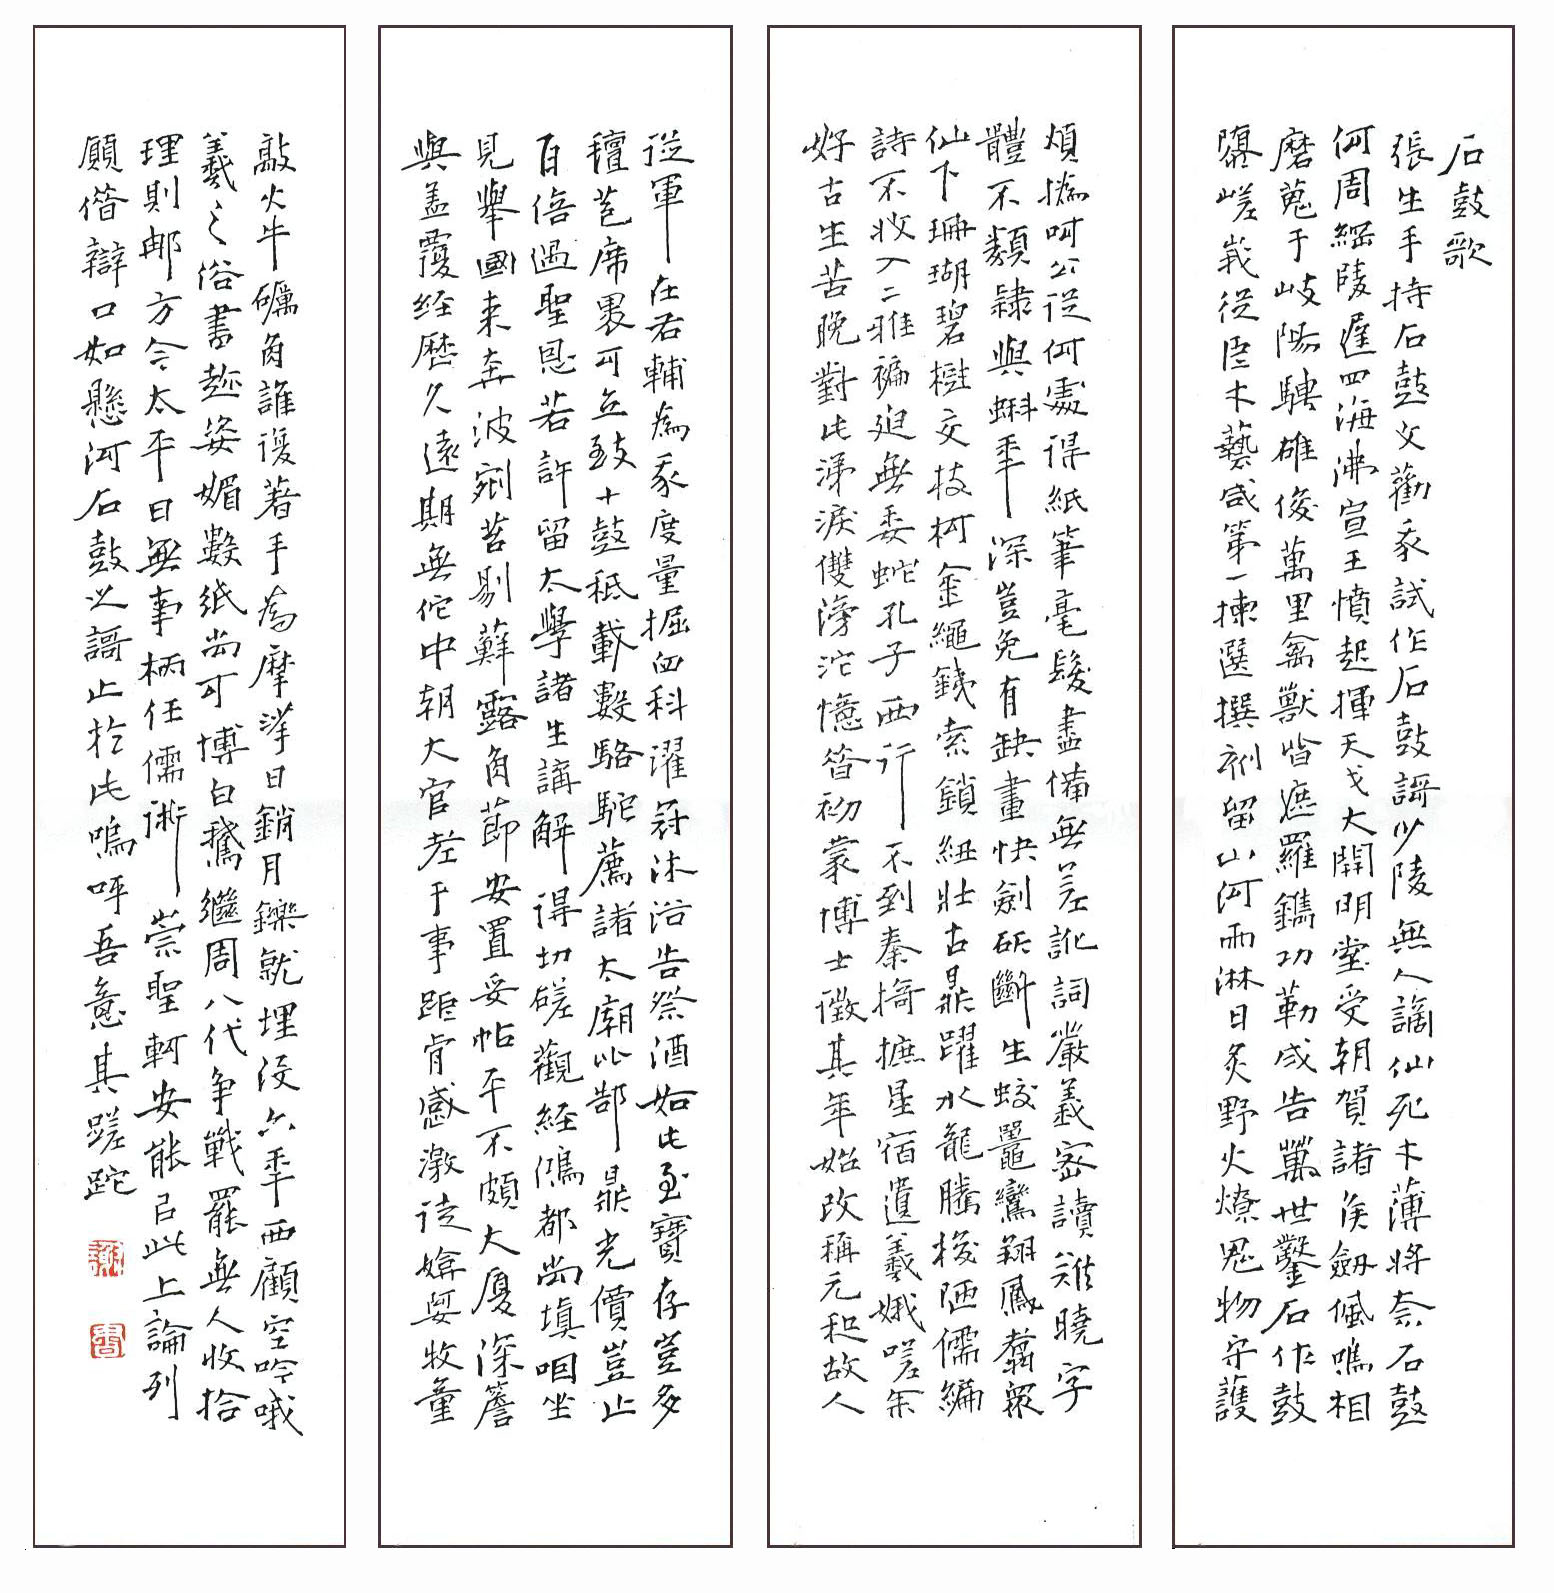 石鼓歌
張生手持石鼓文勸我試作石鼓謌少陵無人謫仙死才薄將奈石鼓
何周綱陵遲四海沸宣王憤起揮天戈大開明堂受朝賀諸侯劔佩鳴相
磨蒐于岐陽騁雄俊萬里禽獸皆遮羅鐫功勒成告萬世鑿石作鼓
隳嵯峩從臣才藝咸第一揀選撰刻留山河雨淋日炙野火燎鬼物守護
煩撝呵公從何處得紙筆毫髮盡備無差訛詞嚴義密讀難曉字
體不類隸與蝌年深豈免有缺畫快劍斫斷生蛟鼉鸞翔鳳翥衆
仙下珊瑚碧樹交枝柯金繩鐵索鎖紐壯古鼎躍水龍騰梭陋儒編
詩不收入二雅褊迫無委蛇孔子西行不到秦掎摭星宿遺羲娥嗟余
好古生苦晚對此涕淚雙滂沱憶昔初蒙博士徵其年始改稱元和故人
從軍在右輔為我度量掘臼科濯冠沐浴告祭酒如此至寶存豈多
氊苞席裹可立致十鼓秪載數駱駝薦諸太廟比郜鼎光價豈止
百倍過聖恩若許留太學諸生講解得切磋觀經鴻都尚填咽坐
見舉國来奔波剜苔剔蘚露角節安置妥帖平不頗大厦深簷
與盖覆経歷久遠期無佗中朝大官老于事詎肯感激徒媕婀牧童
敲火牛礪角誰復著手為摩挲日銷月鑠就埋沒六年西顧空吟哦
羲之俗書趁姿媚數紙尚可博白鵝繼周八代争戰罷無人收拾
理則那方今太平日無事柄任儒術崇聖軻安能以此上論列
願借辯口如懸河石鼓之謌止於此嗚呼吾意其蹉跎